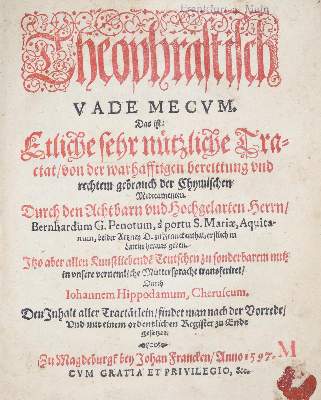 Frankfurt a. Main
Theophrastisch
VADE MECVM.
Das ist:
Etliche sehr nützliche Tra-
ctat / von der warhafftigen bereittung vnd
rechtem gebrauch der Chymischen
Medicamenten.
Durch den Achtbarn vnd Hochgelarten Herrn /
Bernhardum G. Penotum, à portu S. Mariæ, Aquita-
num, beider Artzney D. zu Franckenthal, erstlich in
Latin heraus geben.
Itzo aber allen Kunstliebenden Teutschen zu sonderbarem nutz
in vnsere vernemliche Muttersprache transferiret /
Durch
Iohannem Hippodamum, Cheruscum.
Den Inhalt aller Tractätlein / findet man nach der Vorrede /
Vnd mit einem ordentlichen Register zu Ende
gesetzet.
Zu Magdeburgk bey Johan Francken / Anno 1597.
M
CVM GRATIA ET PRIVILEGIO, &c.